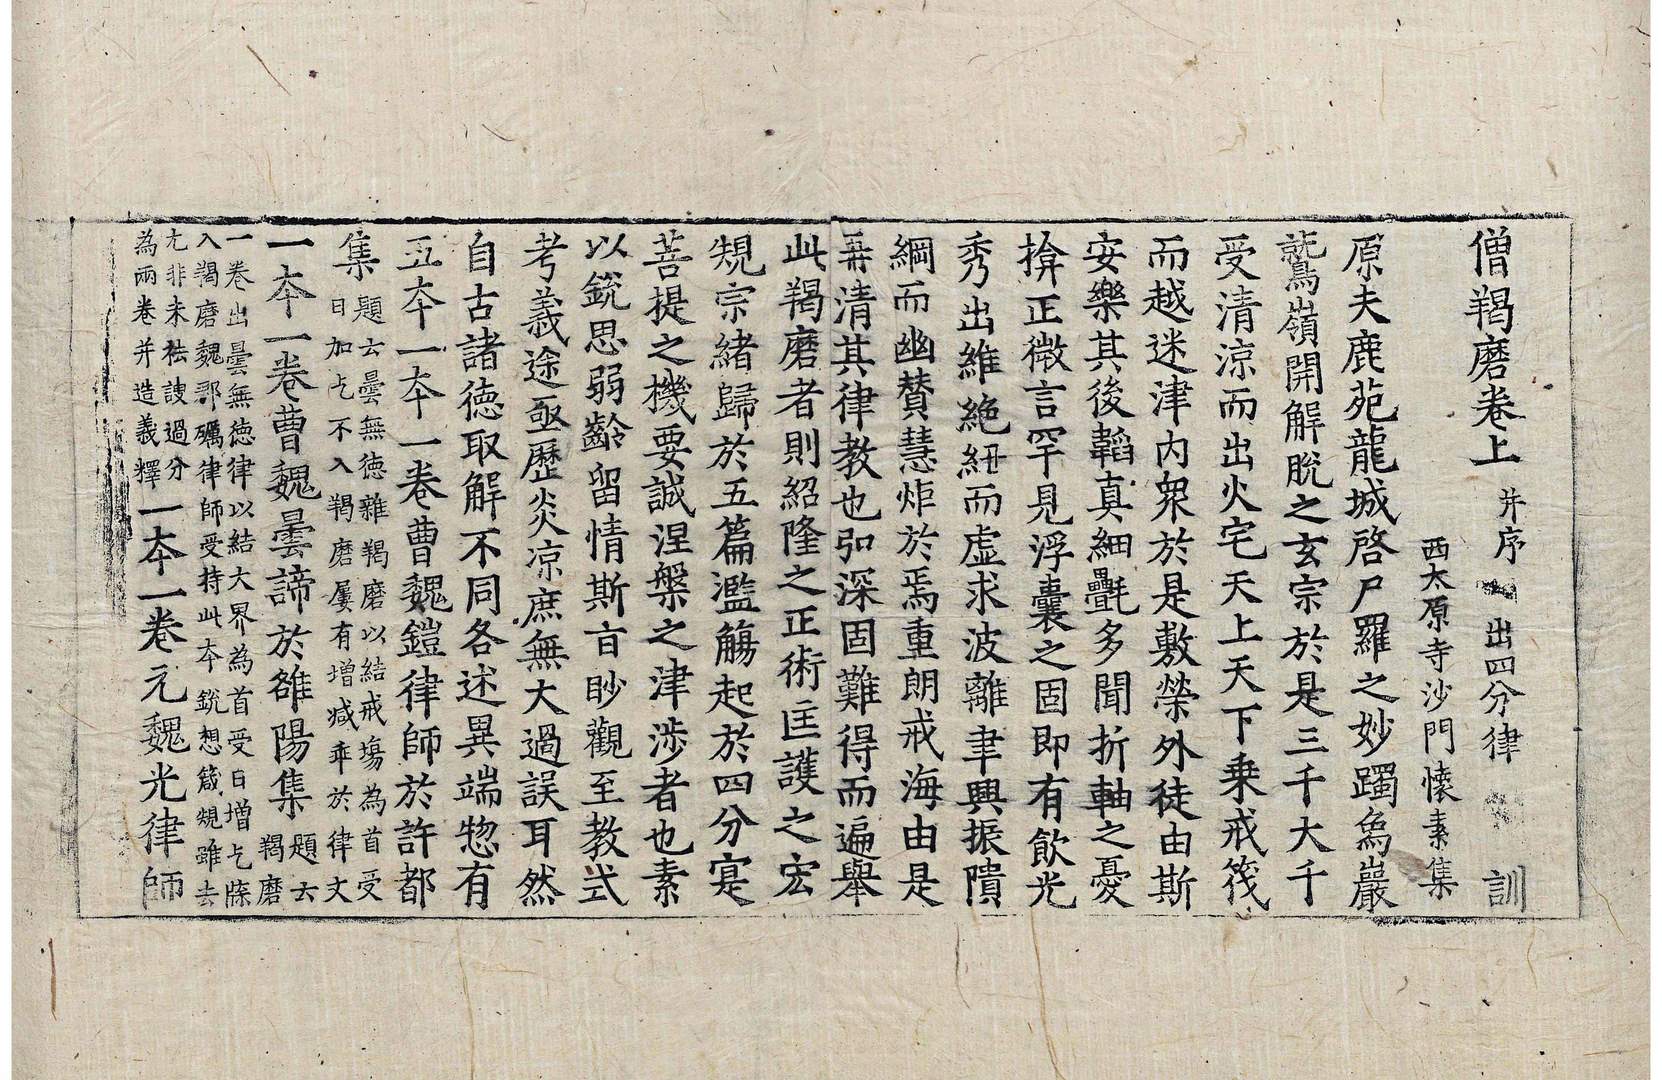 僧羯磨卷上 并序 出四分律 訓
西太原寺沙門懷素集
原夫鹿苑龍城啓尸羅之妙躅烏巖
鷲嶺開解脫之玄宗於是三千大千
受清涼而出火宅天上天下乗戒筏
而越迷津内衆於是敷榮外徒由斯
安樂其後韜真細㲲多聞折軸之憂
揜正微言罕見浮囊之固即有飲光
秀出維絶紐而虛求波離聿興振隤
綱而幽賛慧炬於焉重朗戒海由是
再清其律教也弘深固難得而遍舉
此羯磨者則紹隆之正術匡護之宏
規宗緒歸於五篇濫觴起於四分寔
菩提之機要誠涅槃之津渉者也素
以銳思弱齡留情斯旨眇觀至教式
考義途亟歷炎涼庶無大過誤耳然
自古諸徳取解不同各述異端惣有
五夲一夲一卷曹魏鎧律師於許都
集 題云曇無徳雜羯磨以結戒塲為首受
日加乞不入羯磨屢有增减乖於律文
一夲一卷曹魏曇諦於雒陽集 題云羯磨
一卷出曇無徳律以結大界為首受日增乞牒
入羯磨魏郡礪律師受持此夲銳想箴規雖去
尢非未祛謏過分
為兩卷并造義釋 一夲一卷元魏光律師